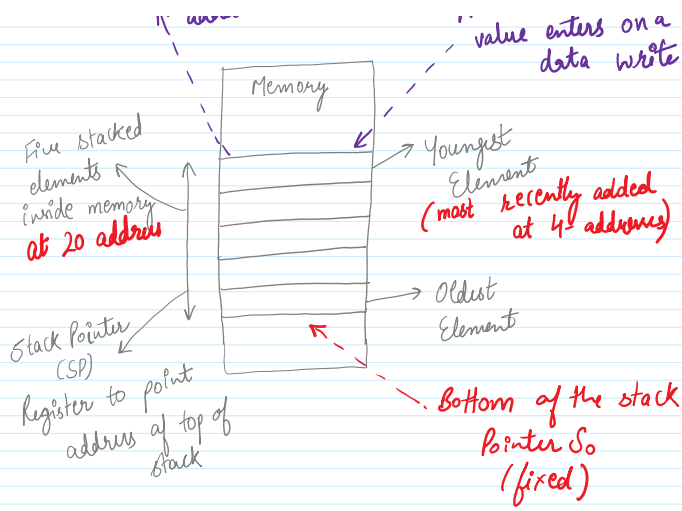 value enters on a
data write
Memory
Five stacked
elements
inside memory
at 20 address
Youngest
Element
(most recently added
at 4 addresses)
Oldest
Element
Stack Pointer
(SP)
Register to point
address of top of
stack
Bottom of the stack
Pointer S₀
(fixed)